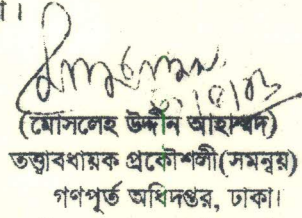 ।
(মোসলেহ উদ্দীন আহাম্মদ)
তত্ত্বাবধায়ক প্রকৌশলী(সমন্বয়)
গণপূর্ত অধিদপ্তর, ঢাকা।